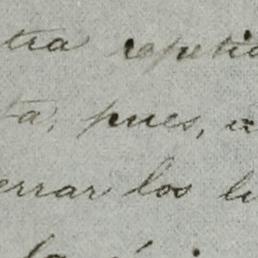 tra repeti
ta, pues,
errar los